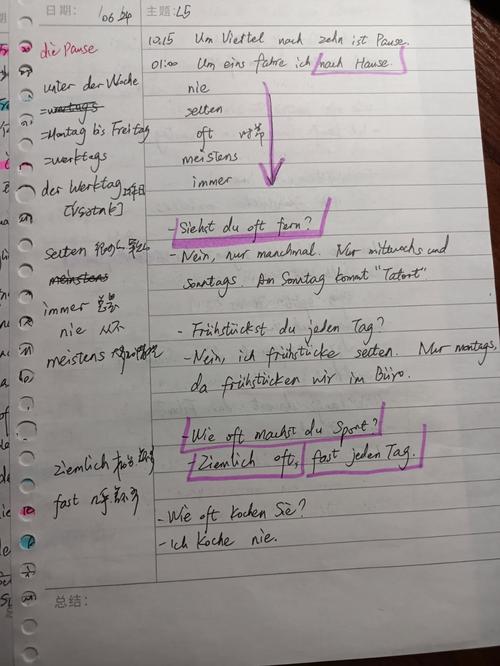 日期: 06.04 主题: L5
die Pause
unter der Woche
=Montag bis Freitag
=werktags
der Werktag 工作日
selten
meinstens
immer 总是
nie 从不
meistens
ziemlich
fast
10.15 Um Viertel nach zehn ist Pause.
01:00 Um eins fahre ich nach Hause.
nie
selten
oft 时常
meistens
immer
- Siehst du oft fern?
- Nein, nur manchmal. Nur mittwochs und
sonntags. Am Sonntag kommt "Tatort"
- Frühstückst du jeden Tag?
- Nein, ich frühstücke selten. Nur montags,
da frühstücken wir im Büro.
- Wie oft machst du Sport?
- Ziemlich oft, fast jeden Tag.
- Wie oft kochen Sie?
- Ich koche nie.
总结: